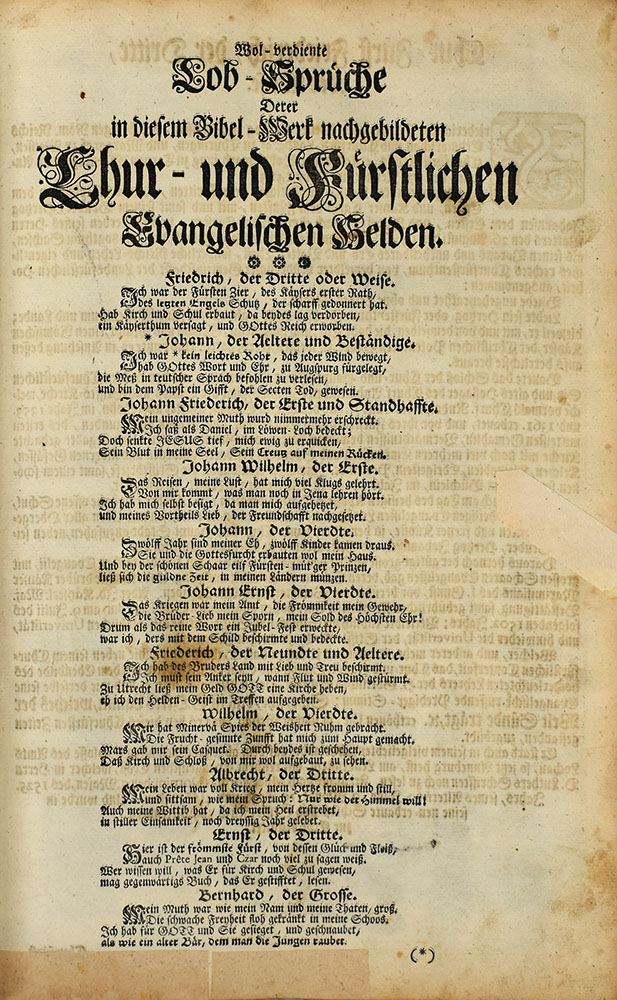 Wol-verdiente
Lob-Sprüche
Derer
in diesem Bibel-Werk nachgebildeten
Chur- und Fürstlichen
Evangelischen Helden.
Friedrich, der Dritte oder Weise.
Ich war der Fürsten Zier, des Käysers erster Rath,
des letzten Engels Schutz, der scharff gedonnert hat.
Hab Kirch und Schul erbaut, da beydes lag verdorben,
ein Käyserthum versagt, und GOttes Reich erworben.
* Johann, der Aeltere und Beständige.
Ich war * kein leichtes Rohr, das jeder Wind bewegt,
hab GOttes Wort und Ehr, zu Augspurg fürgelegt,
die Meß in teutscher Sprach befohlen zu verlesen,
und bin dem Papst ein Gifft, der Secten Tod, gewesen.
Johann Friederich, der Erste und Standhaffte.
Mein ungemeiner Muth wurd nimmetmehr erschreckt.
Ich saß als Daniel, im Löwen-Loch bedeckt;
Doch senkte JESUS tief, mich ewig zu erquicken,
Sein Blut in meine Seel, Sein Creutz auf meinen Rücken.
Johann Wilhelm, der Erste.
Das Reisen, meine Lust, hat mich viel Klugs gelehrt.
Von mir kommt, was man noch in Jena lehren hört.
Ich hab mich selbst besigt, da man mich aufgehetzet,
und meines Vortheils Lieb, der Freundschafft nachgesetzet.
Johann, der Vierdte.
Zwölff Jahr sind meiner Eh, zwölff Kinder kamen draus.
Sie und die Gottesfurcht erbauten wol mein Haus.
Und bey der schönen Schaar eilf Fürsten-müt'ger Prinzen,
ließ sich die güldne Zeit, in meinen Ländern müntzen.
Johann Ernst, der Vierdte.
Das Kriegen war mein Amt, die Frömmkeit mein Gewehr,
die Brüder-Lieb mein Sporn, mein Sold des Höchsten Ehr!
Drum als das reine Wort ein Jubel-Fest erweckte,
war ich, ders mit dem Schild beschirmte und bedeckte.
Friederich, der Neundte und Aeltere.
Ich hab des Bruders Land mit Lieb und Treu beschirmt.
Ich must sein Anker seyn, wann Flut und Wind gestürmt.
Zu Utrecht ließ mein Geld GOTT eine Kirche heben,
eh ich den Helden-Geist im Treffen aufgegeben.
Wilhelm, der Vierdte.
Mir hat Minervä Spies der Weisheit Ruhm gebracht.
Die Frucht-gesinnte Zunfft hat mich zum Haupt gemacht.
Mars gab mir sein Casquet. Durch beydes ist geschehen,
Daß Kirch und Schloß, von mir wol aufgebaut, zu sehen.
Albrecht, der Dritte.
Mein Leben war voll Krieg, mein Hertze fromm und still,
und sittsam, wie mein Spruch: Nur wie der Himmel will!
Auch meine Wittib hat, da ich mein Heil erstrebet,
in stiller Einsamkeit, noch dreyssig Jahr gelebet.
Ernst, der Dritte.
Hier ist der frömmste Fürst, von dessen Glück und Fleiß,
auch Prête Jean und Czar noch viel zu sagen weiß.
Wer wissen will, was Er für Kirch und Schul gewesen,
mag gegenwärtigs Buch, das Er gestifftet, lesen.
Bernhard, der Grosse.
Mein Muth war wie mein Nam und meine Thaten, groß.
Die schwache Freyheit floh gekränkt in meine Schoos.
Ich hab für GOTT und Sie gesieget, und geschnaubet,
als wie ein alter Bär, dem man die Jungen raubet.
(*)